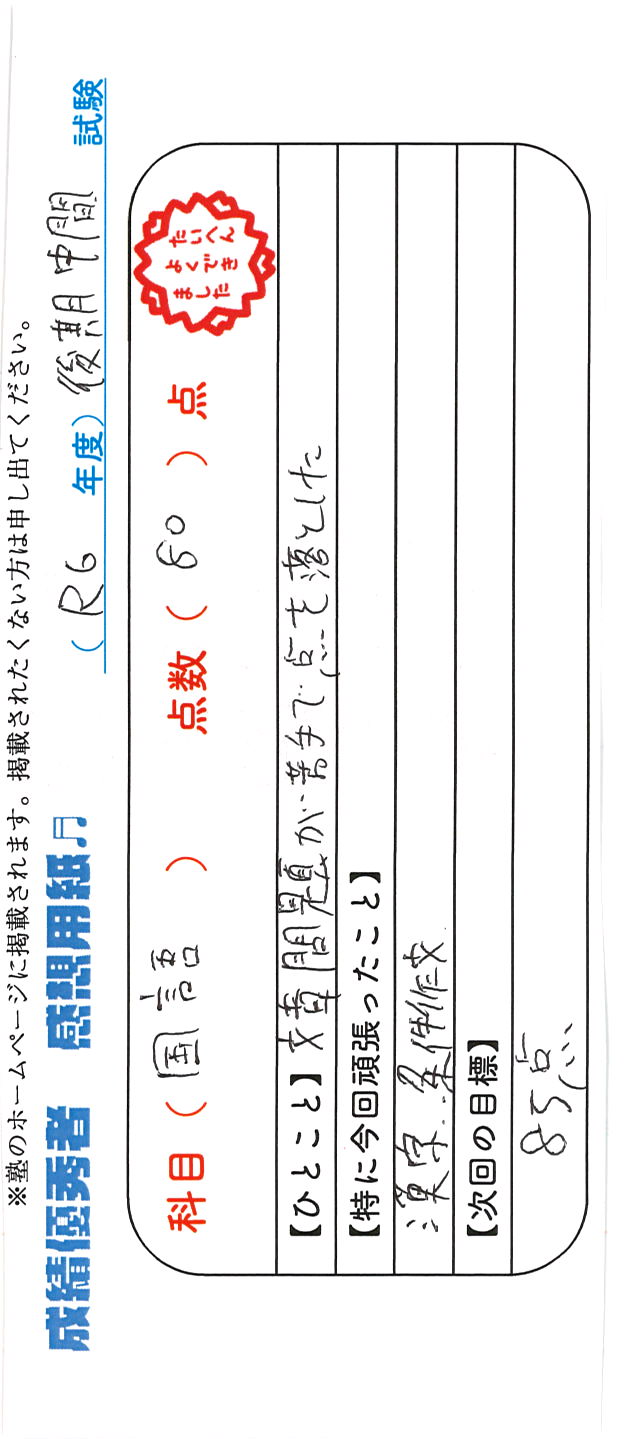 ※塾のホームページに掲載されます。掲載されたくない方は申し出てください。
成績優秀者 感想用紙♫ (R6 年度)後期中間 試験
科目(国語) 点数(80)点
たいへん
よくでき
ました
【ひとこと】文章問題が苦手で点を落とした
【特に今回頑張ったこと】
漢字、条件作文
【次回の目標】
85点